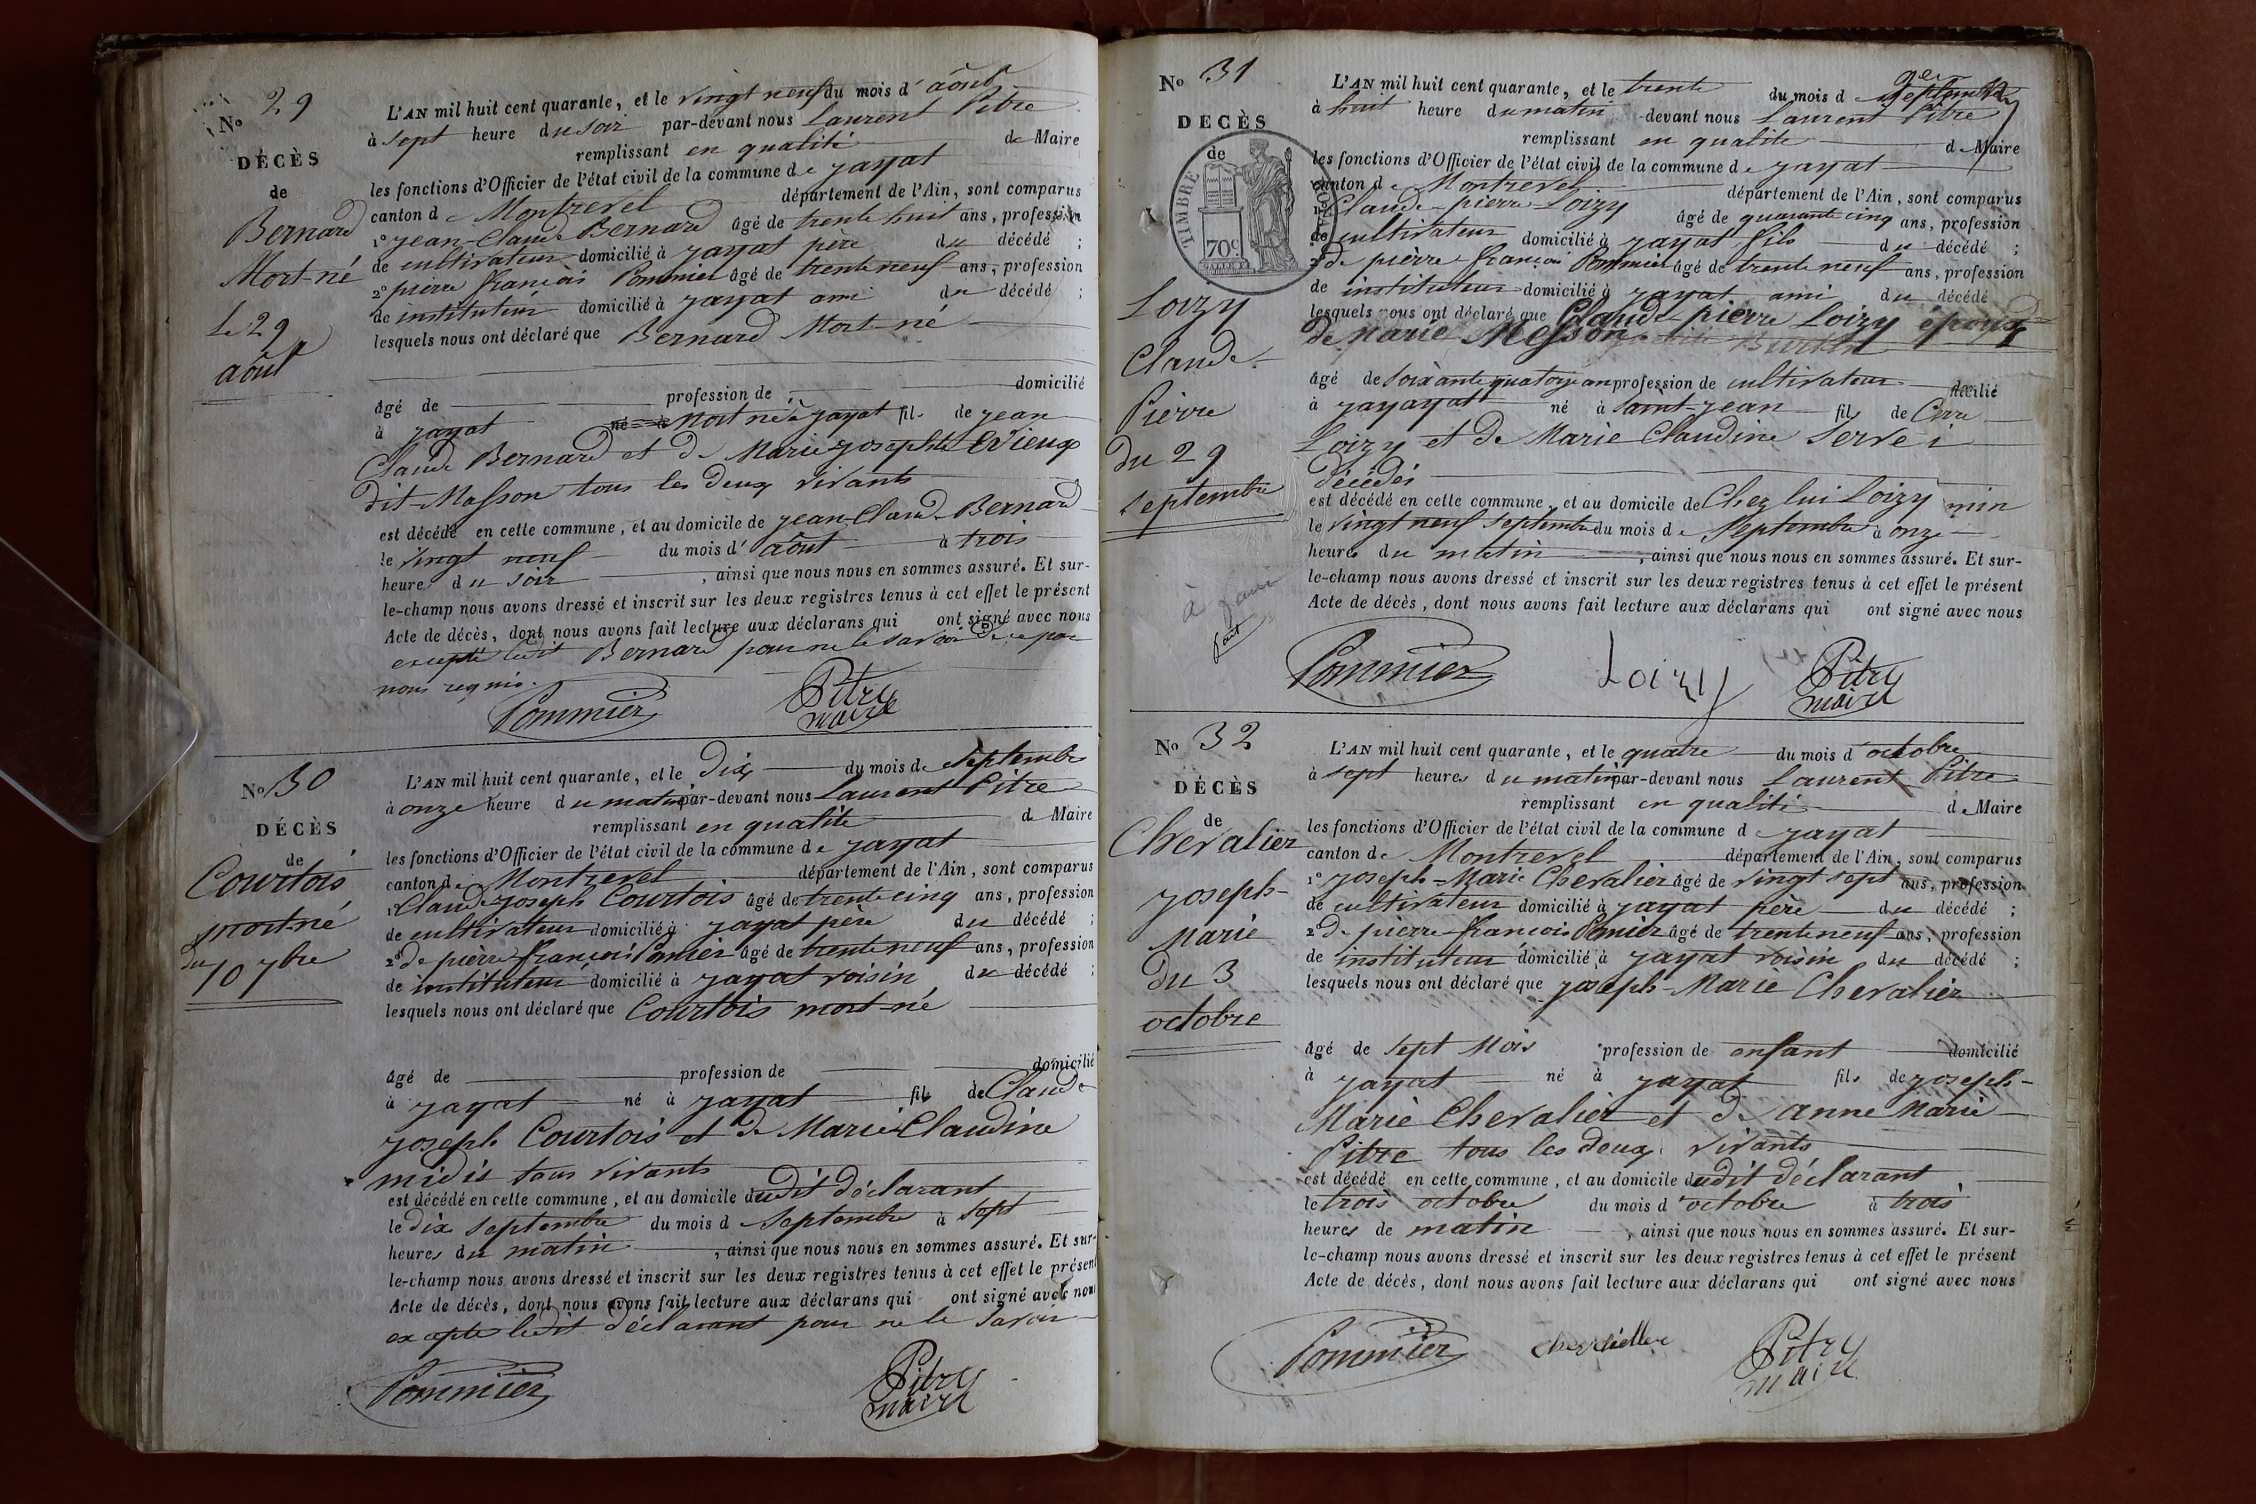 No 29
DÉCÈS
de
Bernard
Mort-né
le 29
août
L'AN mil huit cent quarante, et le vingt neuf du mois d' août
à sept heure du soir par-devant nous Laurent Pitre
remplissant en qualité de Maire
les fonctions d'Officier de l'état civil de la commune de jayat
canton de Montrevel département de l'Ain, sont comparus
1º jean-Claude Bernard âgé de trente huit ans, profession
de cultivateur domicilié à jayat père du décédé ;
2º pierre françois Pommier âgé de trente neuf ans, profession
de instituteur domicilié à jayat ami du décédé ;
lesquels nous ont déclaré que Bernard Mort-né
âgé de profession de domicilié
à jayat né à Mort né à jayat fils de jean
Claude Bernard et de Marie josephte Evieux
dit Masson tous les deux vivants
est décédé en cette commune, et au domicile de jean-Claude Bernard
le vingt neuf du mois d' août à trois
heure du soir , ainsi que nous nous en sommes assuré. Et sur-
le-champ nous avons dressé et inscrit sur les deux registres tenus à cet effet le présent
Acte de décès, dont nous avons fait lecture aux déclarans qui ont signé avec nous
excepté ledit Bernard pour ne le savoir de ce par
nous requis.
Pommier Pitre
maire
No 30
DÉCÈS
de
Courtois
mort-né
du
10 7bre
L'AN mil huit cent quarante, et le dix du mois de septembre
à onze heure du matin par-devant nous Laurent Pitre
remplissant en qualité de Maire
les fonctions d'Officier de l'état civil de la commune de jayat
canton de Montrevel département de l'Ain, sont comparus
1º Claude joseph Courtois âgé de trente cinq ans, profession
de cultivateur domicilié à jayat père du décédé ;
2º de pierre françois Pomier âgé de trente neuf ans, profession
de instituteur domicilié à jayat voisin du décédé ;
lesquels nous ont déclaré que Courtois mort-né
âgé de profession de domicilié
à jayat né à jayat fils de Claude
joseph Courtois et de Marie Claudine
midis tous vivants
est décédé en cette commune, et au domicile dudit déclarant
le dix septembre du mois d septembre à sept
heures du matin , ainsi que nous nous en sommes assuré. Et sur-
le-champ nous avons dressé et inscrit sur les deux registres tenus à cet effet le présent
Acte de décès, dont nous avons fait lecture aux déclarans qui ont signé avec nous
excepté ledit déclarant pour ne le savoir
Pommier Pitre
maire
No 31
DECÈS
de
TIMBRE
70c.
Loizy
Claude
Pierre
du 29
septembre
L'AN mil huit cent quarante, et le trente du mois d septembre
à huit heure du matin -devant nous Laurent Pitre
remplissant en qualité de Maire
les fonctions d'Officier de l'état civil de la commune de jayat
canton de Montrevel département de l'Ain, sont comparus
1º Claude-pierre Loizy âgé de quarante cinq ans, profession
de cultivateur domicilié à jayat fils du décédé ;
2º de pierre françois Pommier âgé de trente neuf ans, profession
de instituteur domicilié à jayat ami du décédé
lesquels nous ont déclaré que Claude pierre Loizy époux
de Marie Messon
âgé de soixante quatorze an profession de cultivateur
à jayayat né à saint-jean fils de
Loizy et de Marie Claudine servei
décédés
est décédé en cette commune, et au domicile de Chez lui Loizy min
le vingt neuf septembre du mois de septembre à onze
heures du matin , ainsi que nous nous en sommes assuré. Et sur-
le-champ nous avons dressé et inscrit sur les deux registres tenus à cet effet le présent
Acte de décès, dont nous avons fait lecture aux déclarans qui ont signé avec nous
Pommier Loizy Pitre
maire
No 32
DÉCÈS
de
Chevalier
joseph-
Marie
du 3
octobre
L'AN mil huit cent quarante, et le quatre du mois d' octobre
à sept heures du matin par-devant nous Laurent Pitre
remplissant en qualité de Maire
les fonctions d'Officier de l'état civil de la commune de jayat
canton de Montrevel département de l'Ain, sont comparus
1º joseph-Marie Chevalier âgé de vingt sept ans, profession
de cultivateur domicilié à jayat père du décédé ;
2º de pierre françois Pomier âgé de trente neuf ans, profession
de instituteur domicilié à jayat voisin du décédé ;
lesquels nous ont déclaré que joseph-Marie Chevalier
âgé de sept Mois profession de enfant domicilié
à jayat né à jayat fils de joseph-
Marie Chevalier et de anne Marie
Pitre tous les deux vivants
est décédé en cette commune, et au domicile dudit déclarant
le trois octobre du mois d'octobre à trois
heures de matin , ainsi que nous nous en sommes assuré. Et sur-
le-champ nous avons dressé et inscrit sur les deux registres tenus à cet effet le présent
Acte de décès, dont nous avons fait lecture aux déclarans qui ont signé avec nous
Pommier Pitre
maire